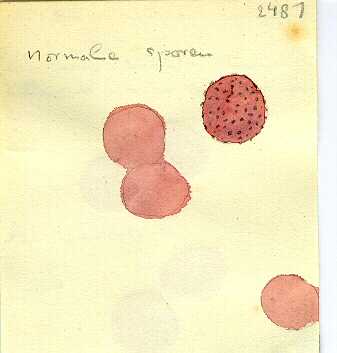 2487
Normale sporen